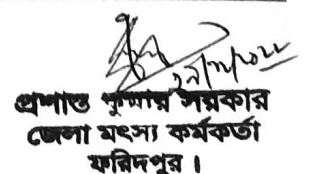 প্রশান্ত কুমার সরকার
জেলা মৎস্য কর্মকর্তা
ফরিদপুর।